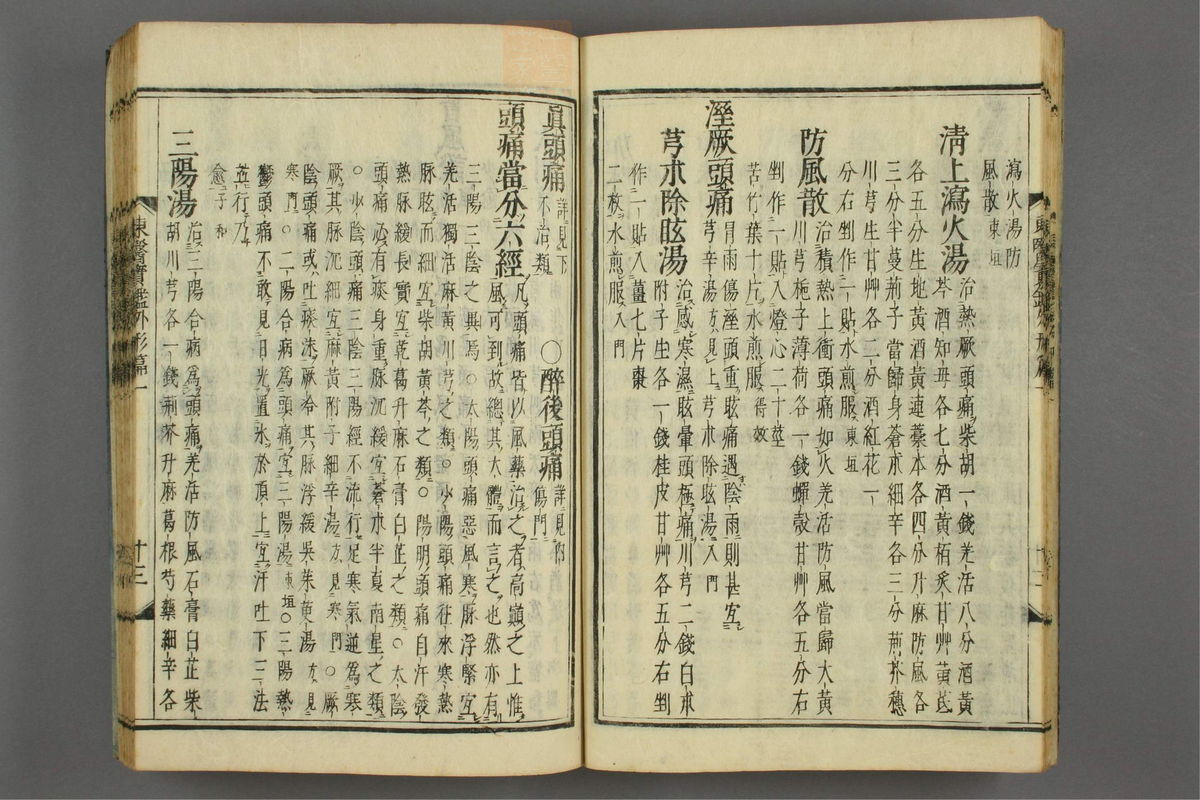 瀉火湯防
風散東垣
淸上瀉火湯治熱厥頭痛柴胡一錢羌活八分酒黃
芩酒知母各七分酒黃栢炙甘艸黃芪
各五分生地黃酒黃連藁本各四分升麻防風各
三分半蔓荊子當歸身蒼朮細辛各三分荊芥穗
川芎生甘艸各二分酒紅花一
分右剉作一貼水煎服東垣
防風散治積熱上衝頭痛如火羌活防風當歸大黃
川芎梔子薄荷各一錢蟬殼甘艸各五分右
剉作一貼入燈心二十莖
苦竹葉十片水煎服得效
溼厥頭痛冒雨傷溼頭重眩痛遇陰雨則甚宜
芎辛湯方見上芎朮除眩湯入門
芎朮除眩湯治感寒濕眩暈頭極痛川芎二錢白朮
附子生各一錢桂皮甘艸各五分右剉
作一貼入薑七片棗
二枚水煎服入門
眞頭痛詳見下不治類○醉後頭痛詳見內傷門
頭痛當分六經凡頭痛皆以風藥治之者高巓之上惟
風可到故總其大體而言之也然亦有
三陽三陰之異焉○太陽頭痛惡風寒脉浮緊宜
羌活獨活麻黃川芎之類○少陽頭痛往來寒熱
脉眩而細宜柴胡黃芩之類○陽明頭痛自汗發
熱脉緩長實宜乾葛升麻石膏白芷之類○太陰
頭痛必有痰身重脉沉緩宜蒼朮半夏南星之類
○少陰頭痛三陰三陽經不流行足寒氣逆爲寒
厥其脉沉細宜麻黃附子細辛湯方見寒門○厥
陰頭痛或吐痰沫厥冷其脉浮緩吳茱萸湯方見
寒門○二陽合病爲頭痛宜三陽湯東垣○三陽熱
鬱頭痛不敢見日光置氷於頂上宜汗吐下三法
並行乃
愈子和
三陽湯治三陽合病爲頭痛羌活防風石膏白芷柴
胡川芎各一錢荊芥升麻葛根芍藥細辛各
東醫寶鑑外形篇一
十三